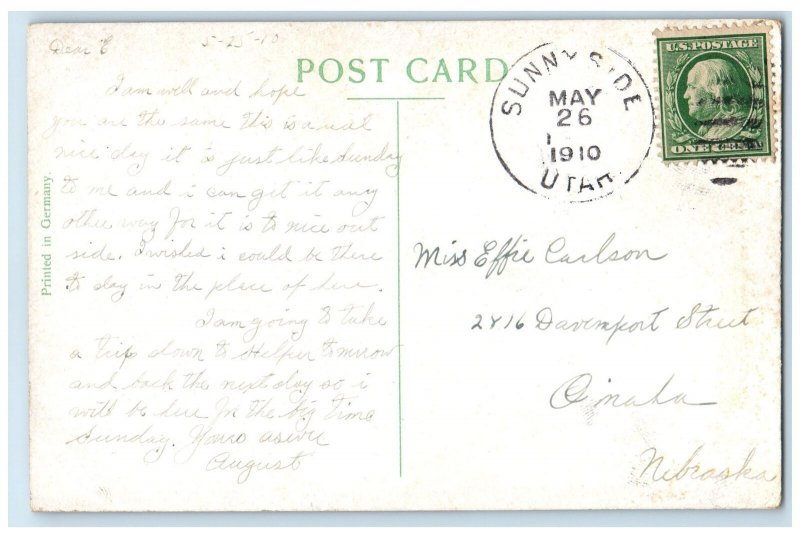 Dear E 5-25-10
POST CARD
I am well and hope
you are the same this is a real
nice day it is just like Sunday
to me and i can get it any
other way for it is to nice out
side. I wished i could be there
to day in the place of here.
I am going to take
a trip down to Helper tomrrow
and back the next day so i
will be here for the big time
Sunday. Yours as
August
Printed in Germany.
SUNNYSIDE
MAY
26
1910
UTAH.
U.S. POSTAGE
ONE
Miss Effie Carlson
2816 Davenport Street
Omaha
Nebraska